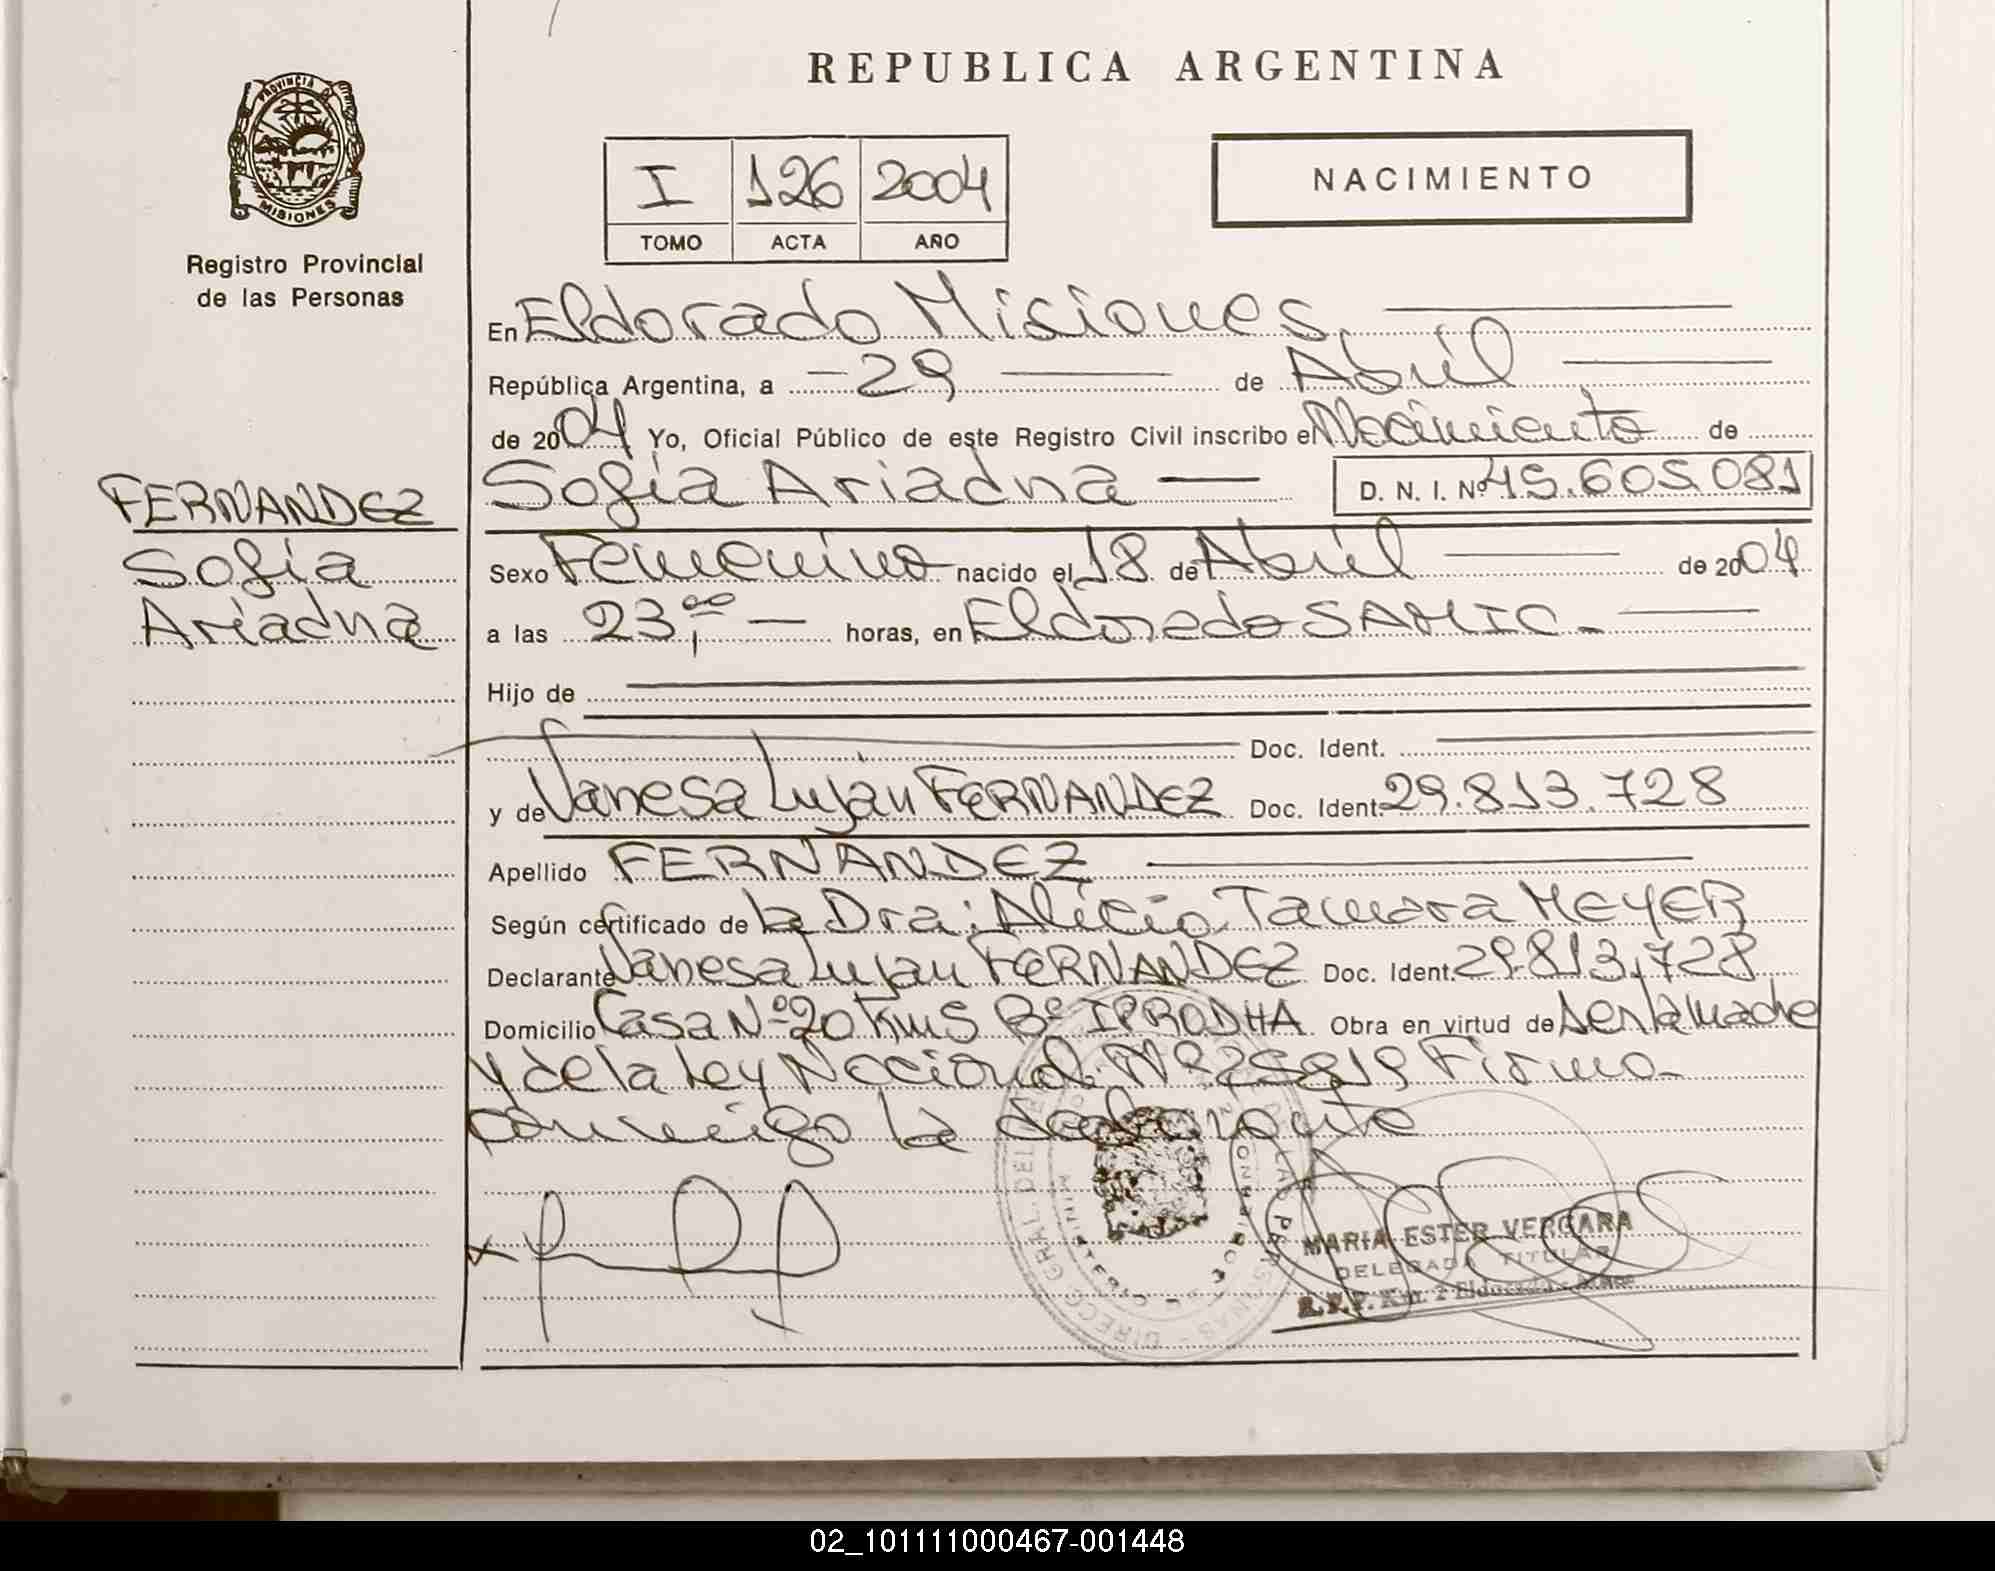 REPUBLICA ARGENTINA
PROVINCIA DE
MISIONES
Registro Provincial
de las Personas
I 126 2004
TOMO ACTA AÑO
NACIMIENTO
En Eldorado Misiones
República Argentina, a 29 de Abril
de 2004 Yo, Oficial Público de este Registro Civil inscribo el Nacimiento de
FERNANDEZ
Sofia
Ariadna
Sofia Ariadna D. N. I. Nº 45.605.081
Sexo Femenino nacido el 18 de Abril de 2004
a las 23,00 horas, en Eldorado SAMIC.
Hijo de
Doc. Ident.
y de Vanesa Luján FERNANDEZ Doc. Ident. 29.813.728
Apellido FERNANDEZ
Según certificado de la Dra: Alicia Tamara MEYER
Declarante Vanesa Lujan FERNANDEZ Doc. Ident. 29.813.728
Domicilio Casa Nº 20 Km 5 Bº IPRODHA Obra en virtud de ser la madre
y de la Ley Nacional Nº 25819 Firma
conmigo la declarante
MARIA ESTER VERGARA
DELEGADA TITULAR
R.P.P. Km. 2 Eldorado - Mnes
02_101111000467-001448